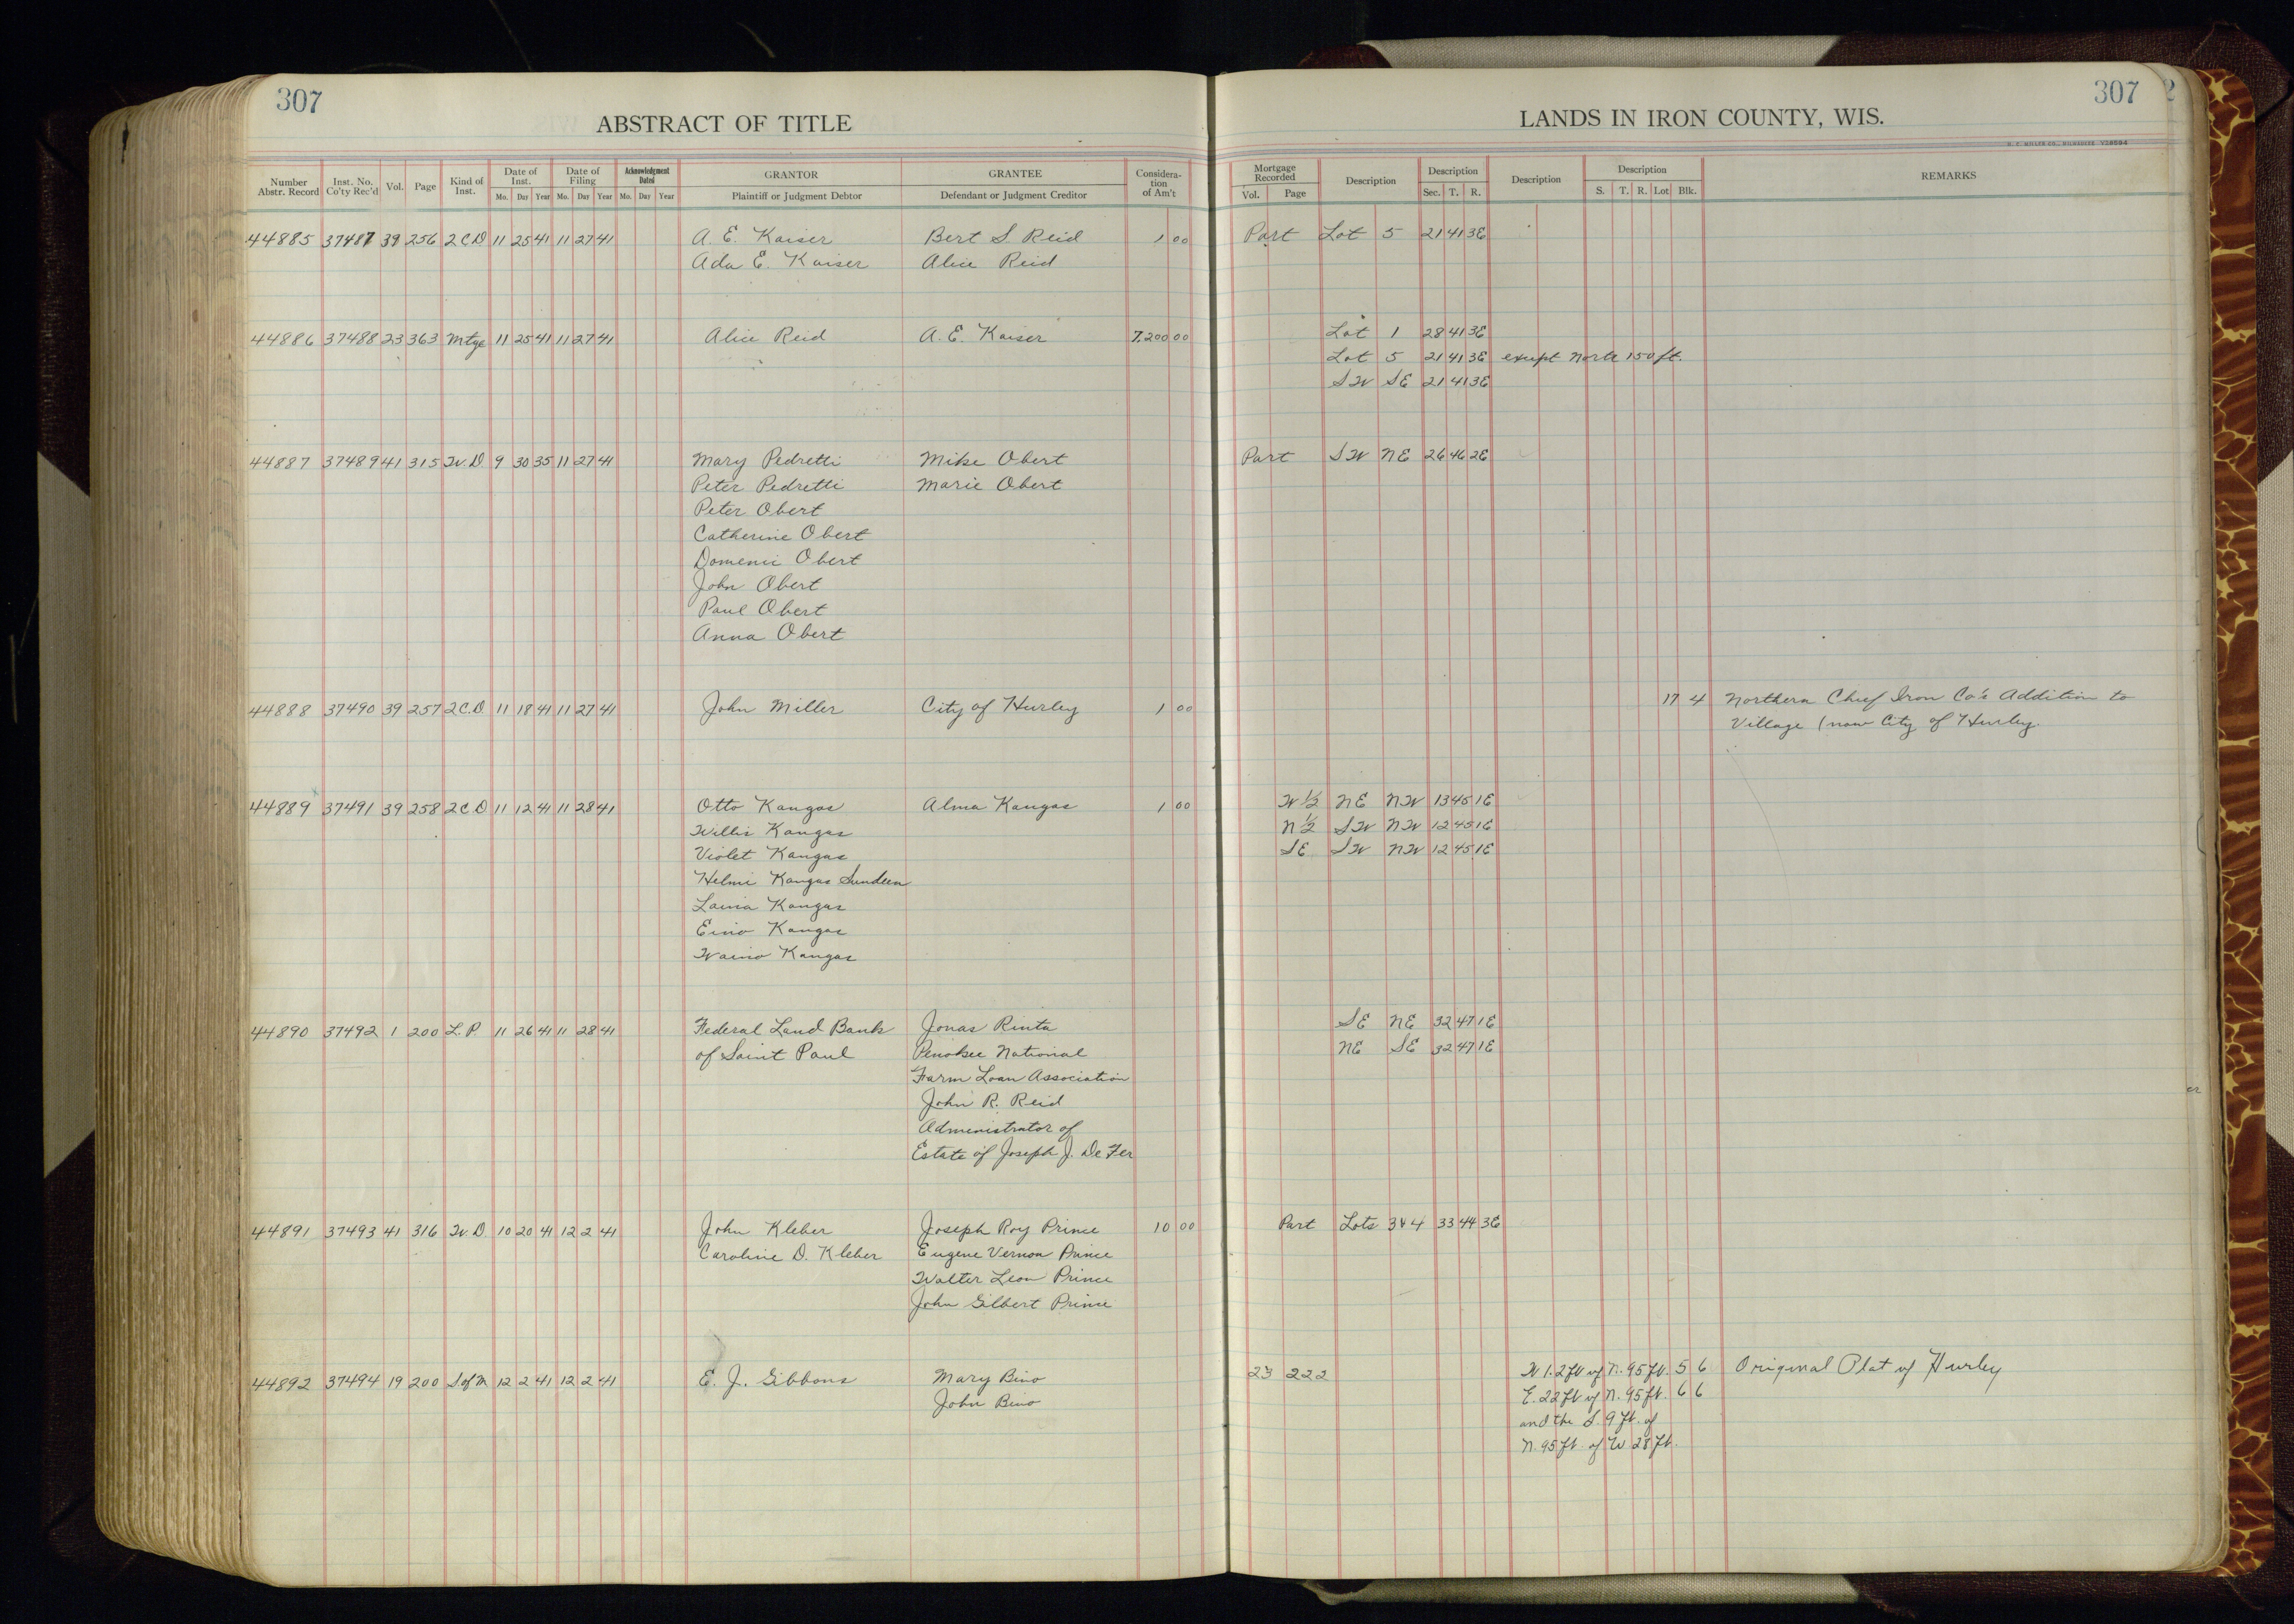 307
ABSTRACT OF TITLE
LANDS IN IRON COUNTY, WIS.
307
H. C. MILLER CO., MILWAUKEE
Number Abstr. Record | Inst. No. Co'ty Rec'd | Vol. | Page | Kind of Inst. | Date of Inst. Mo. Day Year | Date of Filing Mo. Day Year | Acknowledgment Dated Mo. Day Year | GRANTOR Plaintiff or Judgment Debtor | GRANTEE Defendant or Judgment Creditor | Consideration of Am't | Mortgage Recorded Vol. Page | Description | Description Sec. T. R. | Description | Description S. T. R. Lot Blk. | REMARKS
44885 37487 39 256 2CD 11 25 41 11 27 41 A. E. Kaiser Bert S. Reid 1 00 Part Lot 5 21 41 3E
Ada E. Kaiser Alice Reid
44886 37488 23 363 Mtge 11 25 41 11 27 41 Alice Reid A. E. Kaiser 7,200 00 Lot 1 28 41 3E
Lot 5 21 41 3E except North 150 ft.
SW SE 21 41 3E
44887 37489 41 315 W.D. 9 30 35 11 27 41 Mary Pedretti Mike Obert Part SW NE 26 46 2E
Peter Pedretti Marie Obert
Peter Obert
Catherine Obert
Domenic Obert
John Obert
Paul Obert
Anna Obert
44888 37490 39 257 2C.D. 11 18 41 11 27 41 John Miller City of Hurley 1 00 17 4 Northern Chief Iron Co's Addition to
Village (now City of Hurley.
44889 37491 39 258 2C.D 11 12 41 11 28 41 Otto Kangas Alma Kangas 1 00 W ½ NE NW 13 45 1E
Willis Kangas N ½ SW NW 12 45 1E
Violet Kangas SE SW NW 12 45 1E
Helmi Kangas Sundeen
Laina Kangas
Eino Kangas
Waino Kangas
44890 37492 1 200 L.P. 11 26 41 11 28 41 Federal Land Bank Jonas Rinta SE NE 32 47 1E
of Saint Paul Penokee National NE SE 32 47 1E
Farm Loan Association
John R. Reid
Administrator of
Estate of Joseph J. De Fer
44891 37493 41 316 W.D. 10 20 41 12 2 41 John Kleber Joseph Roy Prince 10 00 Part Lots 3 & 4 33 44 3E
Caroline D. Kleber Eugene Vernon Prince
Walter Leon Prince
John Gilbert Prince
44892 37494 19 200 S of M 12 2 41 12 2 41 E. J. Gibbons Mary Bino 23 222 W 1.2 ft of N. 95 ft. 5 6 Original Plat of Hurley
John Bino E. 22 ft of N. 95 ft. 6 6
and the S. 9 ft. of
N. 95 ft. of W 28 ft.